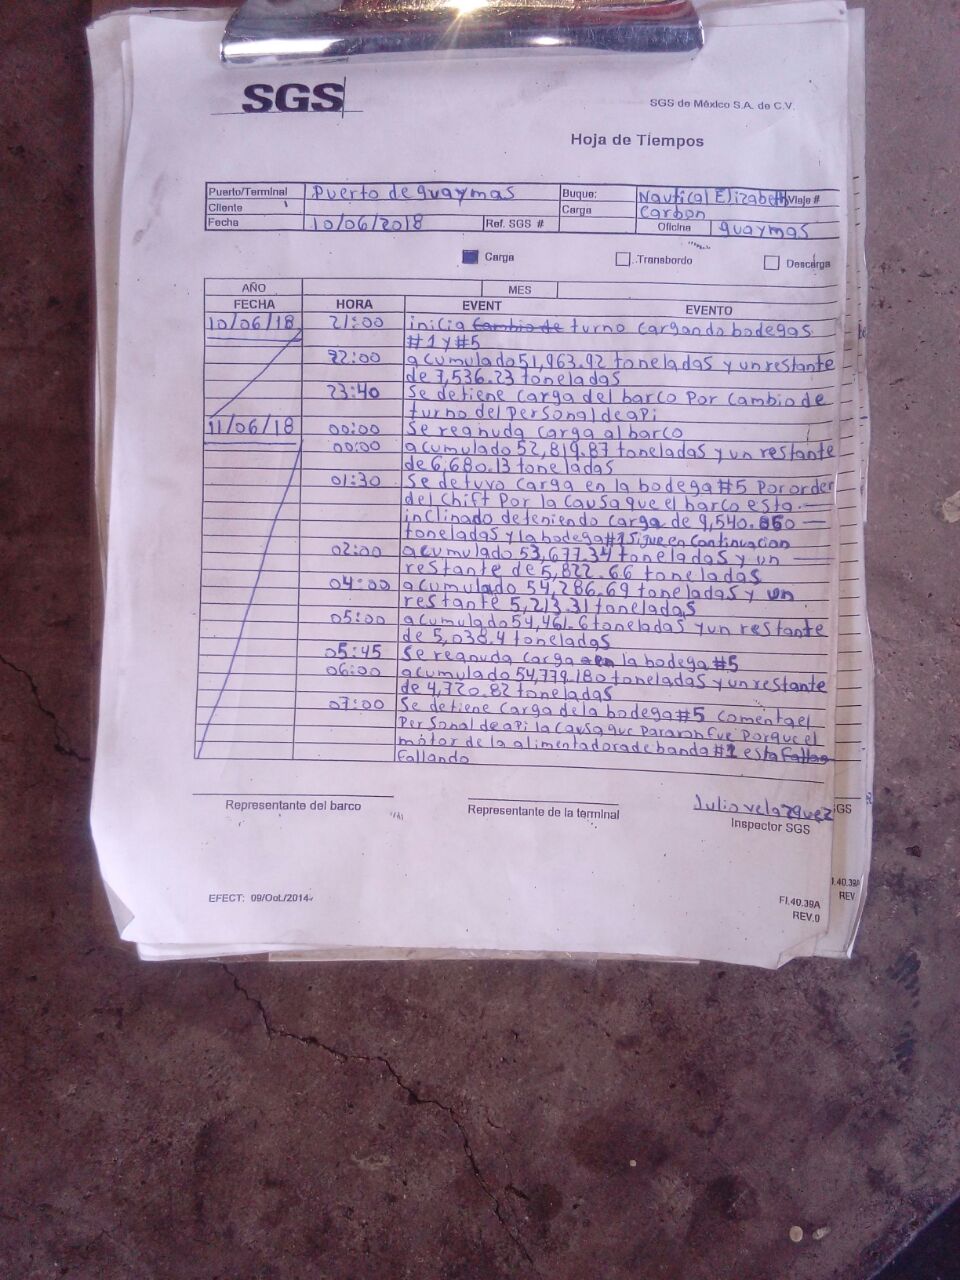 SGS
SGS de México S.A. de C.V.
Hoja de Tiempos
Puerto/Terminal Puerto de guaymas Buque: Nautical Elizabeth Viaje #
Cliente Carga Carbon
Fecha 10/06/2018 Ref. SGS # Oficina guaymas
Carga Transbordo Descarga
AÑO MES
FECHA HORA EVENT EVENTO
10/06/18 21:00 inicia cambio de turno cargando bodegas
#1 y #5
22:00 acumulado 51,963.92 toneladas y un restante
de 7,536.23 toneladas
23:40 Se detiene carga del barco Por cambio de
turno del Personal de api
11/06/18 00:00 Se reanuda carga al barco
00:00 acumulado 52,819.87 toneladas y un restante
de 6,680.13 toneladas
01:30 Se detuvo carga en la bodega #5 Por orden
del Chift Por la causa que el barco esta
inclinado deteniendo carga de 9,540.860
toneladas y la bodega #1 sigue en continuacion
02:00 acumulado 53,677.34 toneladas y un
restante de 5,822.66 toneladas
04:00 acumulado 54,286.69 toneladas y un
restante 5,213.31 toneladas
05:00 acumulado 54,461.6 toneladas y un restante
de 5,038.4 toneladas
05:45 Se reanuda carga en la bodega #5
06:00 acumulado 54,779.180 toneladas y un restante
de 4,720.82 toneladas
07:00 Se detiene carga de la bodega #5 comenta el
Personal de api la causa que pararon fue porque el
motor de la alimentadora de banda #1 esta fallan
fallando
Julio velazquez SGS
Representante del barco Representante de la terminal Inspector SGS
EFECT: 09/Oct./2014
FI.40.39A
REV.0
I.40.39A
REV.